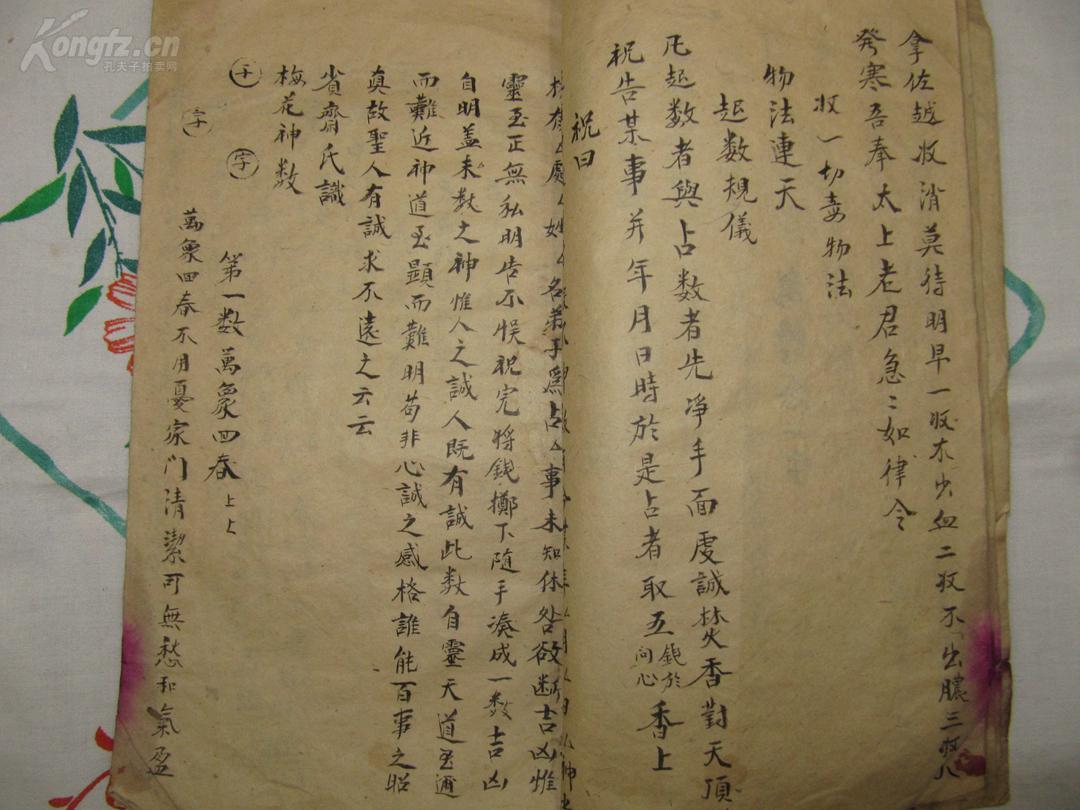 Kongfz.cn
孔夫子拍卖网
拿佐越收消莫待明早一收不出血二收不出膿三收八
發寒吾奉太上老君急〻如律令
收一切毒物法
物法連天
起数規儀
凡起数者與占数者先净手面虔誠焚香對天頂
祝告某事并年月日時於是占者取五錢於問心香上
祝曰
處厶姓厶名弟子為占厶事未知休咎欲断吉凶惟
靈至正無私明告不悞祝完將錢擲下随手湊成一数吉凶
自明盖未数之神惟人之誠人既有誠此数自靈天道至邇
而難近神道至顯而難明苟非心誠之感格誰能百事之昭
真故聖人有誠求不遠之云云
省齋氏識
梅花神数
字 字
第一数萬象回春上上
萬象回春不用憂家门清潔可無愁和氣盈